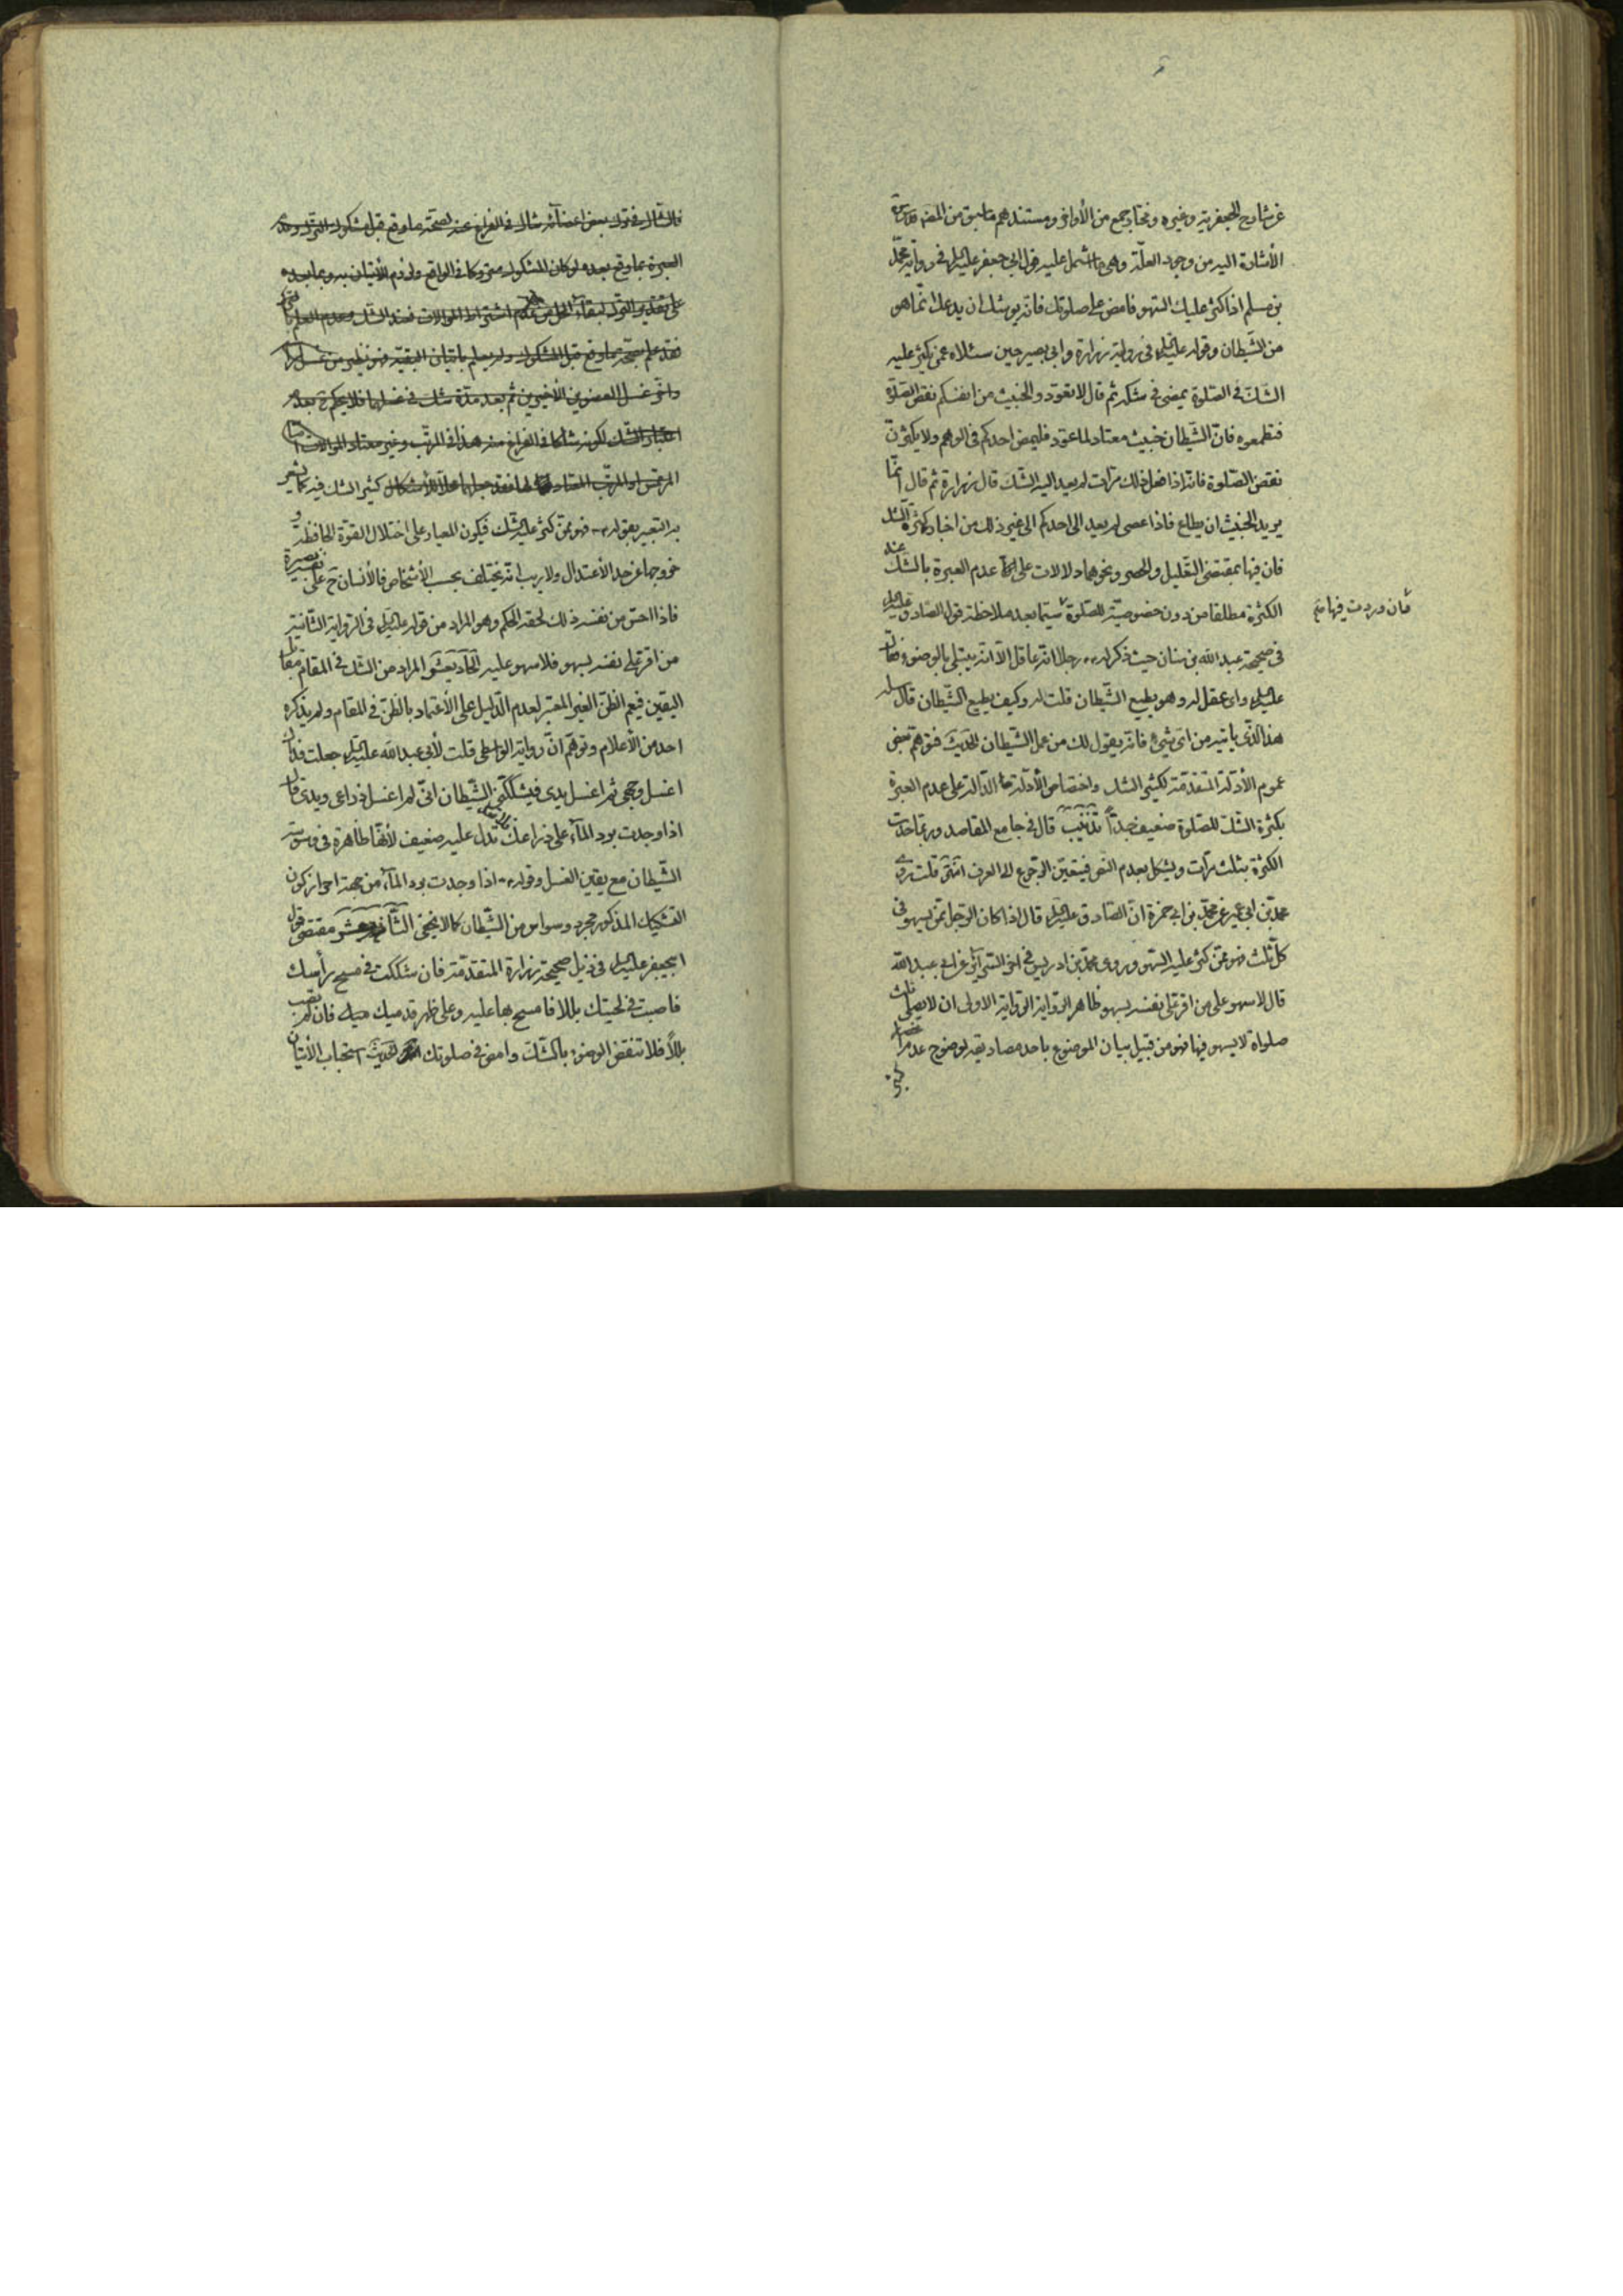 عن شارح الجعفرية وغيره ومختار جمع من الأواخر ومستندهم ما سبق من المضـ قدس سره
الأشارة اليه من وجود العلّة وهي ما اشتمل عليه قول ابي جعفر عليه السلام في رواية محمّد
بن مسلم اذا كثر عليك السّهو فامض على صلوتك فانّه يوشك ان يدعك انّما هو
من الشّيطان وقوله عليه السلام في رواية زرارة وابي بصير حين سئلاه عمّن يكثر عليه
الشّك في الصّلوة يمضى في شكّه ثم قال لا تعودوا الخبيث من انفسكم نقض الصّلوة
فتطمعوه فانّ الشّيطان خبيث معتاد لما عوّد فليمض احدكم في الوهم ولا يكثرنّ
نقض الصّلوة فانّه اذا فعل ذلك مرّات لم يعد اليه الشّك قال زرارة ثم قال انّما
يريد الخبيث ان يطاع فاذا عصى لم يعد الى احدكم الى غير ذلك من اخبار كثرة الشّك
فان فيها بمقتضى التّعليل والحصر ونحوهما دلالات على عدم العبرة بالشّك عند
الكثرة مطلقا من دون خصوصيّة للصّلوة سيّما بعد ملاحظة قول الصّادق عليه السلام
فان وردت فيها منه
في صحيحة عبد الله بن سنان حيث ذكر له رجلا انّه عاقل الّا انّه يبتلى بالوضوء فقال
عليه السلام واى عقل له وهو يطيع الشّيطان قلت له وكيف يطيع الشّيطان قال سله
هذا الّذى ياتيه من اىّ شىء فانّه يقول لك من عمل الشّيطان الحديث فتوهّم بعض
عموم الأدلّة المتقدّمة لكثير الشك واختصاص الأدلّة الدّالة على عدم العبرة
بكثرة الشّك للصّلوة ضعيف جدّاً تذنيب قال في جامع المقاصد وربّما حدّت
الكثرة بثلث مرّات ويشكل بعدم النّص فيتعيّن الرّجوع الى العرف انتهى قلت روى
محمّد بن ابي عمير عن محمّد بن ابي حمزة انّ الصّادق عليه السلام قال اذا كان الرّجل ممّن يسهو في
كلّ ثلث فهو ممّن كثر عليه السّهو وروى محمّد بن ادريس في اخر السّرآئر عن ابي عبد الله
قال لا سهو على من اقرّ على نفسه بسهو ظاهر الرّواية الاولى ان لا يصلّى ثلث
صلواة لا يسهو فيها فهو من قبيل بيان الموضوع باحد مصاديقه لوضوح عدم
فالشّاك في ترك بعض اعضآئه شاك في الفراغ عنه لصحّة ما وقع قبل مشكوك التّرك وعدم
العبرة بما وقع بعده لو كان المشكوك متروكا في الواقع ولزوم الأتيان به وبما بعده
على تقدير التّرك لبقآء المحل من عدم اشتراط الموالات فعند الشّك وعدم العلم
فقد علم بصحّة ما وقع قبل المشكوك ولم يعلم باتيان البقيّة فهو نظير من غسل
واتى غسل العضوين الأخيرين ثم بعد مدّة شك في غسلهما فلا يحكم ح بعدم
اعتبار الشّك لكونه شاكا في الفراغ منه هذا في المرتّب وغير معتاد الموالات
كثير الشك فيه كما يشعر
به التعبير بقوله فهو ممّن كثر عليه الشّك فيكون المعيار على اختلال القوّة الحافظة و
خروجها عن حد الأعتدال ولا ريب انّه يختلف بحسب الأشخاص فالأنسان ح على نفسه بصيرة
فاذا احسّ من نفسه ذلك لحقه الحكم وهو المراد من قوله عليه السلام في الرّواية الثّانية
من اقرّ على نفسه بسهو فلا سهو عليه الحاديعشر المراد من الشّك في المقام مقابل
اليقين فيعم الظنّ الغير المعتبر لعدم الدّليل على الأعتماد بالظنّ في المقام ولم يذكره
احد من الأعلام وتوهّم انّ رواية الواسطى قلت لأبي عبد الله عليه السلام جعلت فداك
اغسل وجهى ثم اغسل يدى فيشكّكنى الشّيطان انّى لم اغسل ذراعى ويدى قال
اذا وجدت برد المآء على ذراعك فلا تعد تدل عليه ضعيف لأنّها ظاهرة في وسوسة
الشّيطان مع يقين الغسل وقوله اذا وجدت برد المآء من جهة احراز كون
التشكيك المذكور مجرد وسواس من الشّيطان كما لا يخفى الثّانيعشر مقتضى قول
ابيجعفر عليه السلام في ذيل صحيحة زرارة المتقدّمة فان شككت في مسح رأسك
فاصبت في لحيتك بللا فامسح بها عليه وعلى ظهر قدميك فان لم تصب
بللاً فلا تنقض الوضوء بالشّك وامض في صلوتك الحديث استحباب الأتيان